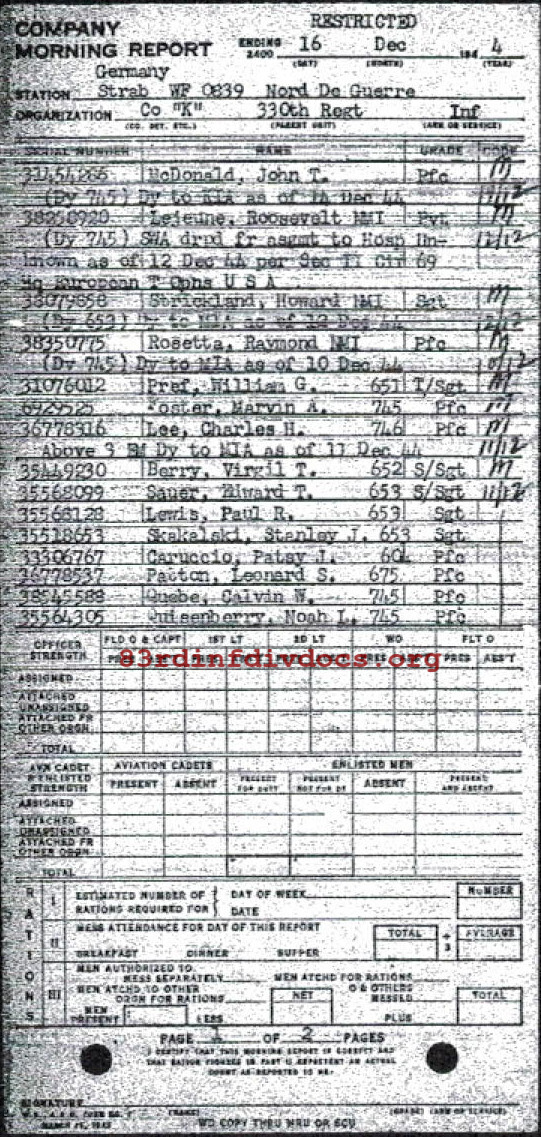 RESTRICTED
COMPANY
MORNING REPORT ENDING 2400 16 Dec 194 4
(DAY) (MONTH) (YEAR)
Germany
STATION Strab WF 0839 Nord De Guerre
ORGANIZATION Co "K" 330th Regt Inf
(CO. DET. ETC.) (PARENT UNIT) (ARM OR SERVICE)
SERIAL NUMBER NAME GRADE CODE
31454286 McDonald, John T. Pfc M
(Dy 745) Dy to MIA as of 14 Dec 44 11/12
38258920 Lejeune, Roosevelt NMI Pvt M
(Dy 745) SWA drpd fr asgmt to Hosp Un- 12/12
known as of 12 Dec 44 per Sec II Cir 69
Hq European T Opns U S A
38079858 Strickland, Howard NMI Sgt M
(Dy 653) Dy to MIA as of 12 Dec 44 12/12
38350775 Rosetta, Raymond NMI Pfc M
(Dy 745) Dy to MIA as of 10 Dec 44 10/12
31076012 Pref, William G. 651 T/Sgt M
6929525 Foster, Marvin A. 745 Pfc M
36778316 Lee, Charles H. 746 Pfc M
Above 3 EM Dy to MIA as of 11 Dec 44 11/12
35449230 Berry, Virgil T. 652 S/Sgt M
35568099 Sauer, Edward T. 653 S/Sgt 11/12
35568128 Lewis, Paul R. 653 Sgt
35518653 Skakalski, Stanley J. 653 Sgt
33306767 Caruccio, Patsy J. 604 Pfc
36778537 Patton, Leonard S. 675 Pfc
38545588 Quebe, Calvin W. 745 Pfc
35564305 Quisenberry, Noah L. 745 Pfc
OFFICER STRENGTH FLD O & CAPT 1ST LT 2D LT WO FLT O
PRES ABS'T
83rdinfdivdocs.org
ASSIGNED
ATTACHED UNASSIGNED
ATTACHED FR OTHER ORGN
TOTAL
AVN CADET & ENLISTED STRENGTH AVIATION CADETS ENLISTED MEN
PRESENT ABSENT PRESENT FOR DUTY PRESENT NOT FOR DY ABSENT PRESENT AND ABSENT
ASSIGNED
ATTACHED UNASSIGNED
ATTACHED FR OTHER ORGN
TOTAL
RATIONS
I ESTIMATED NUMBER OF RATIONS REQUIRED FOR DAY OF WEEK DATE NUMBER
II MESS ATTENDANCE FOR DAY OF THIS REPORT TOTAL ÷ 3 AVERAGE
BREAKFAST DINNER SUPPER
III MEN AUTHORIZED TO MESS SEPARATELY MEN ATCHD FOR RATIONS
MEN ATCHD TO OTHER ORGN FOR RATIONS NET O & OTHERS MESSED TOTAL
MEN PRESENT LESS PLUS
PAGE 1 OF 2 PAGES
I CERTIFY THAT THIS MORNING REPORT IS CORRECT AND
SIGNATURE
(NAME) (GRADE) (ARM OR SERVICE)
WD COPY THRU MRU OR SCU